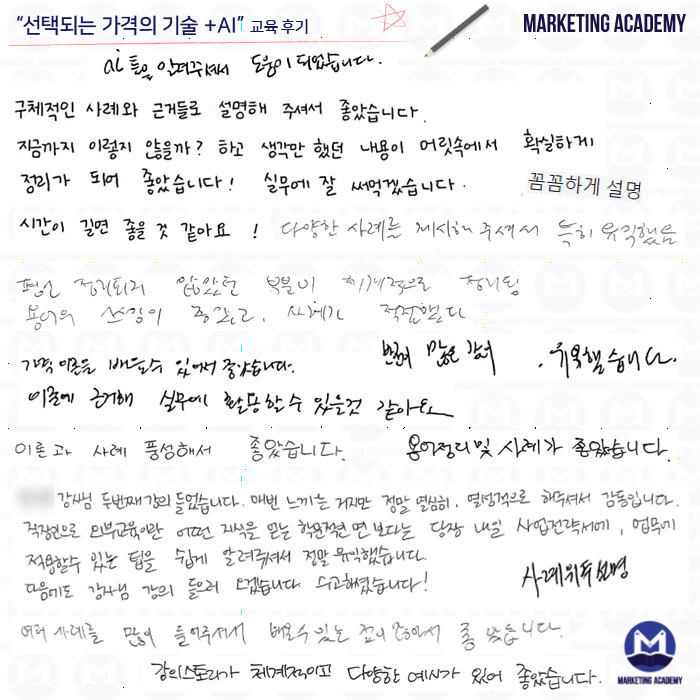 “선택되는 가격의 기술 +AI” 교육 후기
MARKETING ACADEMY
ai 툴을 알려주셔서 도움이 되었습니다.
구체적인 사례와 근거들로 설명해 주셔서 좋았습니다.
지금까지 이렇지 않을까? 하고 생각만 했던 내용이 머릿속에서 확실하게
정리가 되어 좋았습니다! 실무에 잘 써먹겠습니다.
꼼꼼하게 설명
시간이 길면 좋을 것 같아요 !
다양한 사례를 제시해 주셔서 특히 유익했음
평소 정리되지 않았던 부분이 체계적으로 정리됨
용어의 쓰임이 좋았고, 사례가 적절했다
가격 이론을 배울수 있어서 좋았습니다.
많은 강의
. 유익했습니다.
이론에 근거해 실무에 활용할 수 있을것 같아요
이론과 사례 풍성해서 좋았습니다.
용어정리 및 사례가 좋았습니다.
강사님 두번째 강의 들었습니다. 매번 느끼는 거지만 정말 열심히, 열성적으로 해주셔서 감동입니다.
직장인으로 외부교육이란 어떤 지식을 얻는 학문적인 면 보다는 당장 내일 사업전략서에, 업무에
적용할수 있는 팁을 쉽게 알려주셔서 정말 유익했습니다.
다음에도 강사님 강의 들으러 오겠습니다 수고하셨습니다!
사례위주 설명
여러 사례를 많이 들어주셔서 배울 수 있는 점이 많아서 좋았습니다.
강의스토리가 체계적이고 다양한 예시가 있어 좋았습니다.
MARKETING ACADEMY